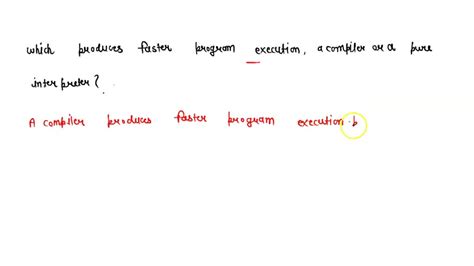 which produces faster program execution, a compiler or a pure
interpreter?
A compiler produces faster program execution b